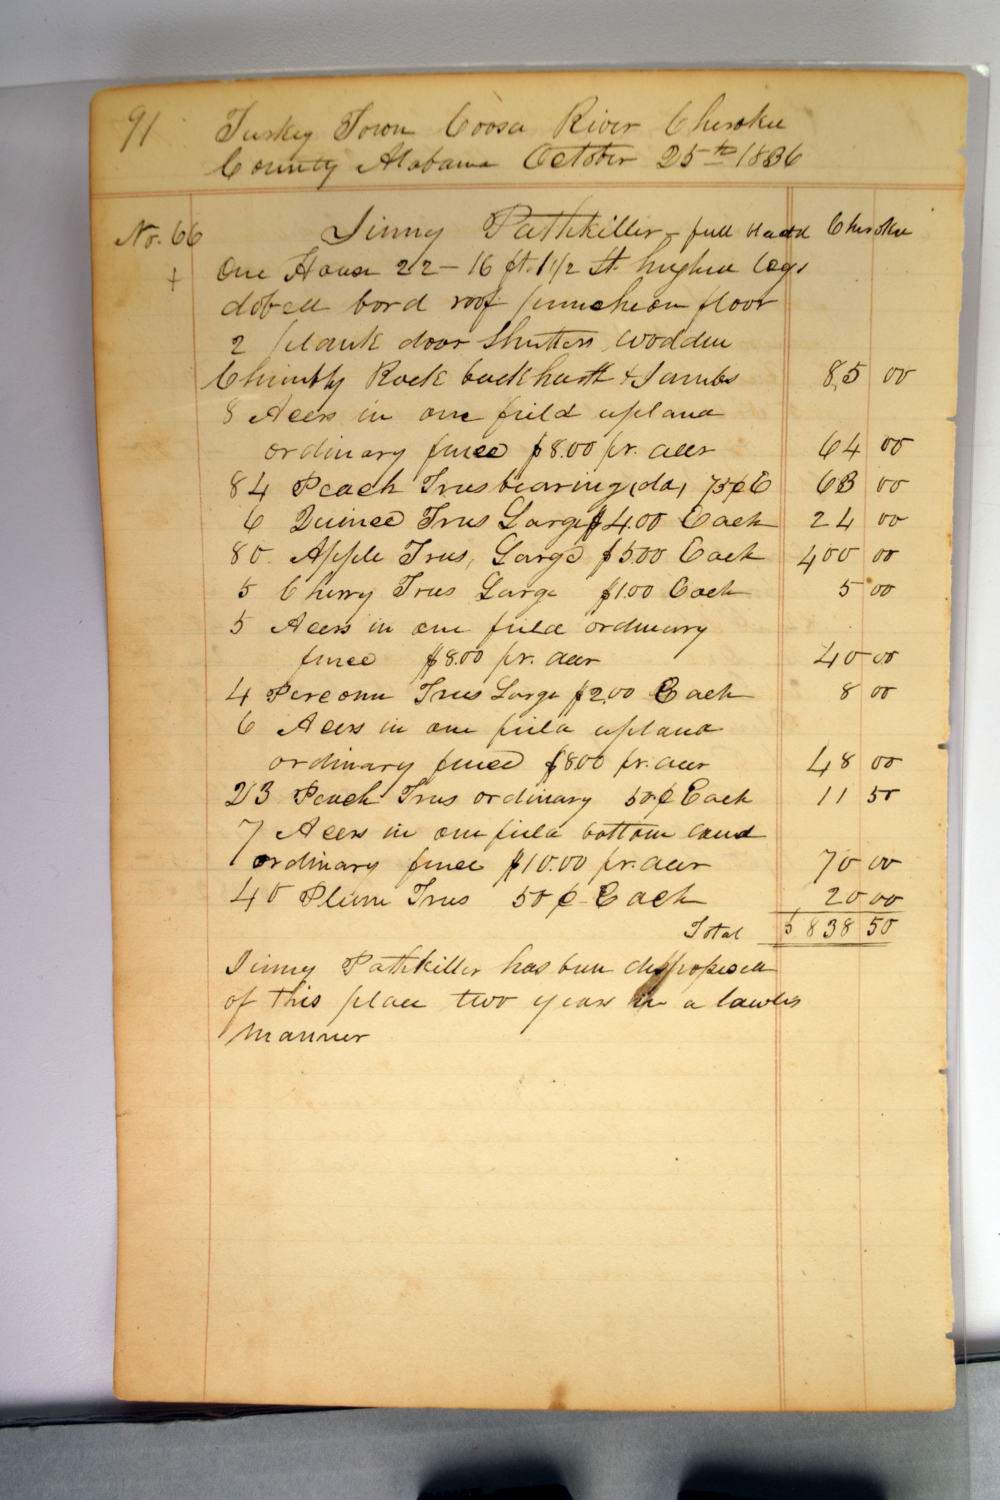 91 Turkey Town Coosa River Cherokee
County Alabama October 25th 1836
No. 66 Jinny Pathkiller - full blood Cherokee
One House 22 - 16 ft. 1 1/2 St. highue logs
dobed bord roof puncheon floor
2 plank door Shutters wodden
Chimbly Rock backharth & Jambs 85 00
8 Acers in one field upland
ordinary fence $8.00 pr. acer 64 00
84 Peach Trees bearing (do) 75¢ E 63 00
6 Quince Trees Large $4.00 Each 24 00
80. Apple Trees, Large $5.00 Each 400 00
5 Cherry Trees Large $1.00 Each 5 00
5 Acers in one field ordinary
fence $8.00 pr. acer 40 00
4 Percemn Trees Large $2.00 Each 8 00
6 Acers in one field upland
ordinary fence $8.00 pr. acer 48 00
23 Peach Trees ordinary 50¢ Each 11 50
7 Acers in one field bottom land
ordinary fence $10.00 pr. acer 70 00
40 Plum Trees 50¢ Each 20 00
Total $838 50
Jinny Pathkiller has been dispopesed
of this place two years in a lawles
manner